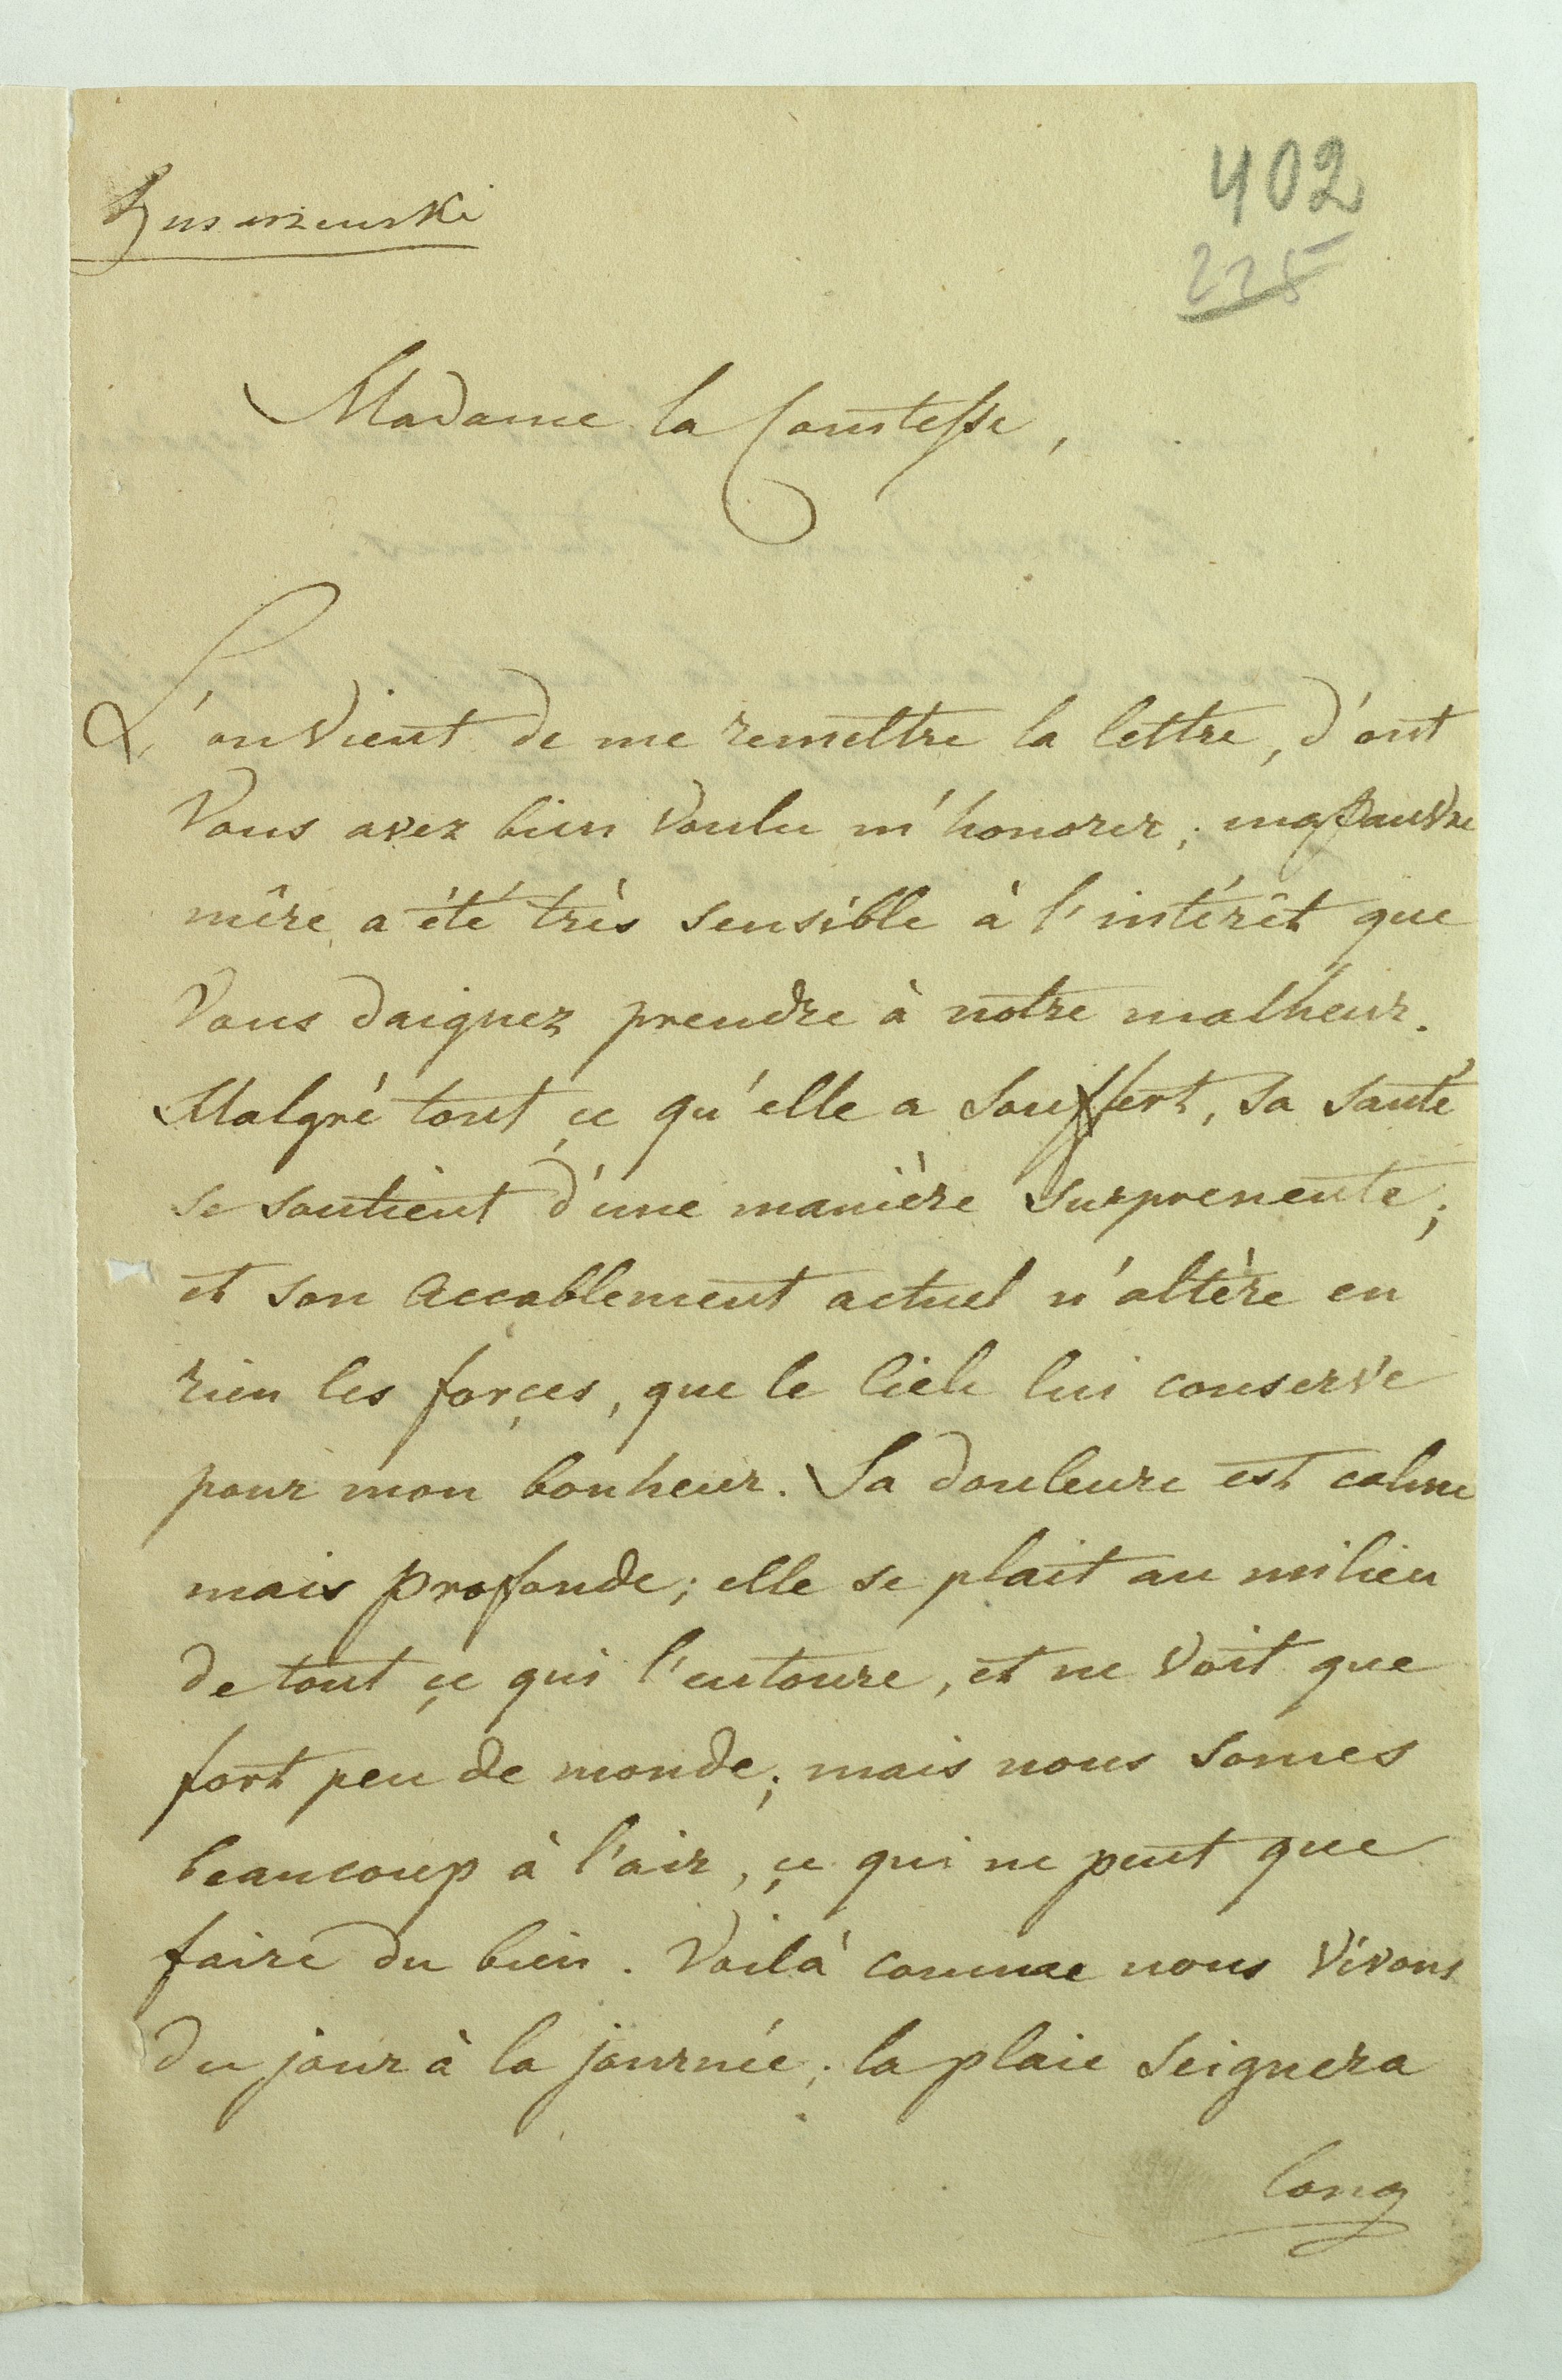 402
225
Madame la Comtesse,
L'on vient de me remettre la lettre, d'ont
Vous avez bien voulu m'honorer; ma pauvre
mêre a été très sensible à l'intérêt que
Vous daignez prendre à notre malheur.
Malgré tout çe qu'elle a souffert, sa santé
se soutient d'une manière surprenente;
et son accablement actuel n'altère en
rien les forçes, que le Ciele lui conserve
pour mon bonheur. Sa douleure est calme
mais profonde; elle se plait au milieu
de tout çe qui l'entoure, et ne voit que
fort peu de monde; mais nous somes
beaucoup à l'air, çe qui ne peut que
faire du bien. Voilà comme nous vivons
du jour à la journée; la plaie seignera
long